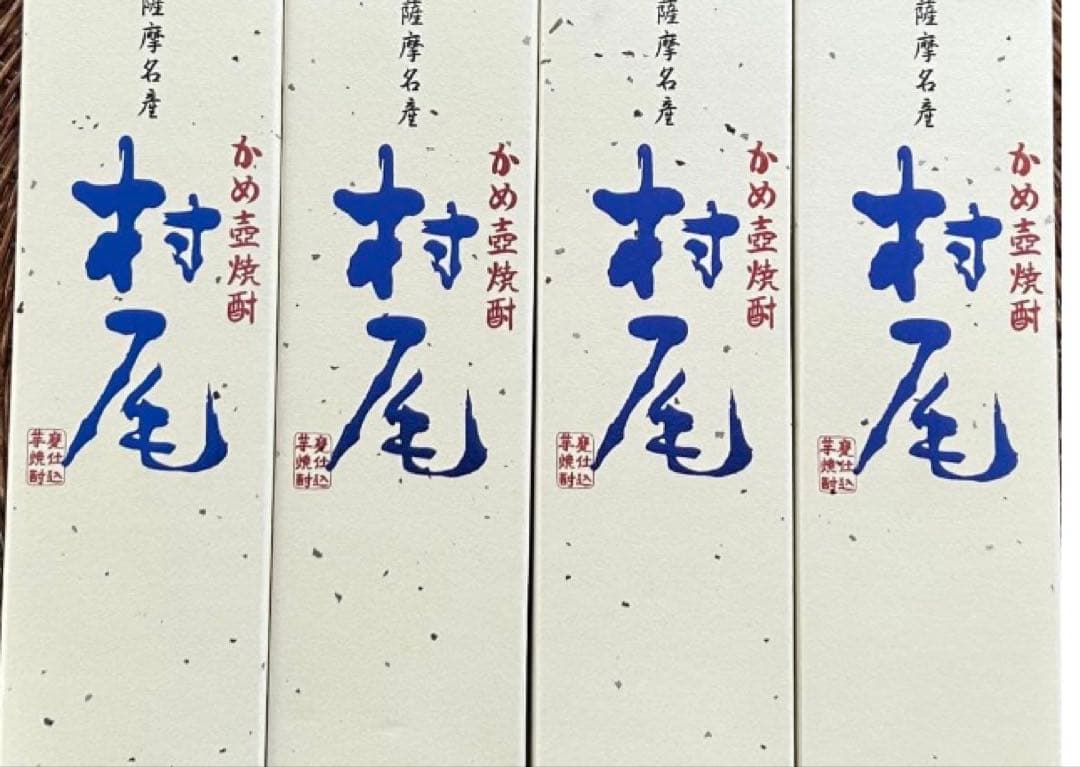 薩摩名産
かめ壺焼酎
村尾
甕仕込
芋焼酎
薩摩名産
かめ壺焼酎
村尾
甕仕込
芋焼酎
薩摩名産
かめ壺焼酎
村尾
甕仕込
芋焼酎
薩摩名産
かめ壺焼酎
村尾
甕仕込
芋焼酎